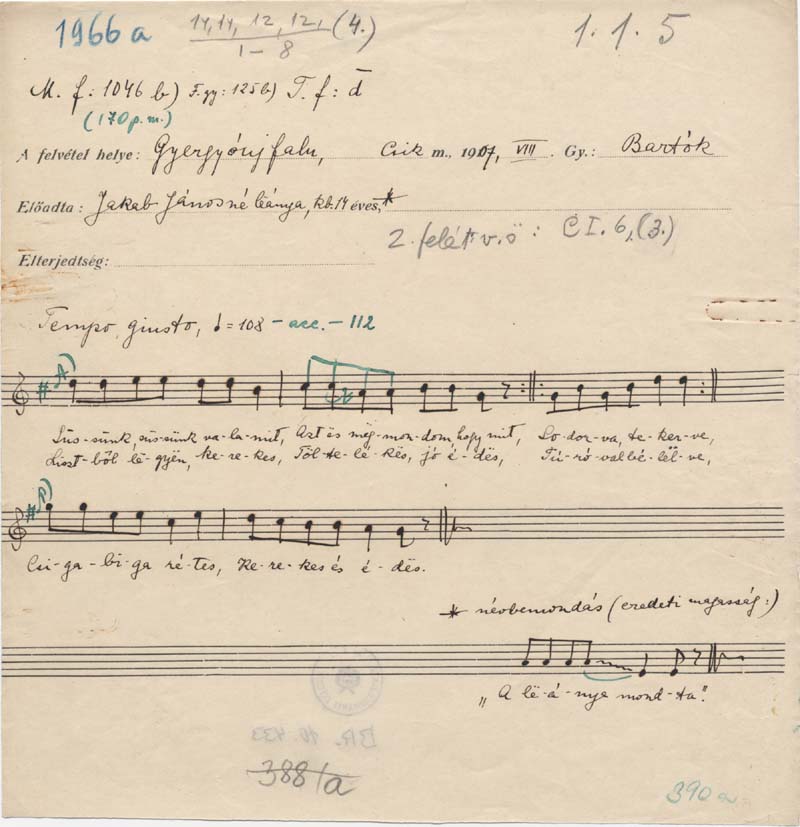 1966a 14, 14, 12, 12, (4.) 1.1.5
1–8
M. f: 1046 b) F. gy: 125 b) T. f: d̄
(170 p. m.)
A felvétel helye: Gyergyóújfalu, Csik m., 1907, VIII. Gy.: Bartók
Előadta: Jakab Jánosné leánya, kb. 14 éves,*
2. felét v.ö: C I. 6, (3.)
Elterjedtség:
Tempo giusto, ♩ = 108 – acc. – 112
Süs-sünk, süs-sünk va-la-mit, Azt és mëg-mon-dom hogy mit, So-dor-va, te-ker-ve,
Liszt-ből lë-gyën, ke-re-kes, Töl-te-lé-kës, jó é-dës, Tú-ró-val bé-lël-ve,
Csi-ga-bi-ga ré-tes, Ke-re-kes és é-dës.
* névbemondás (eredeti magasság:)
„A lë-á-nya mond-ta".
BR. 10.433
388/a
390a